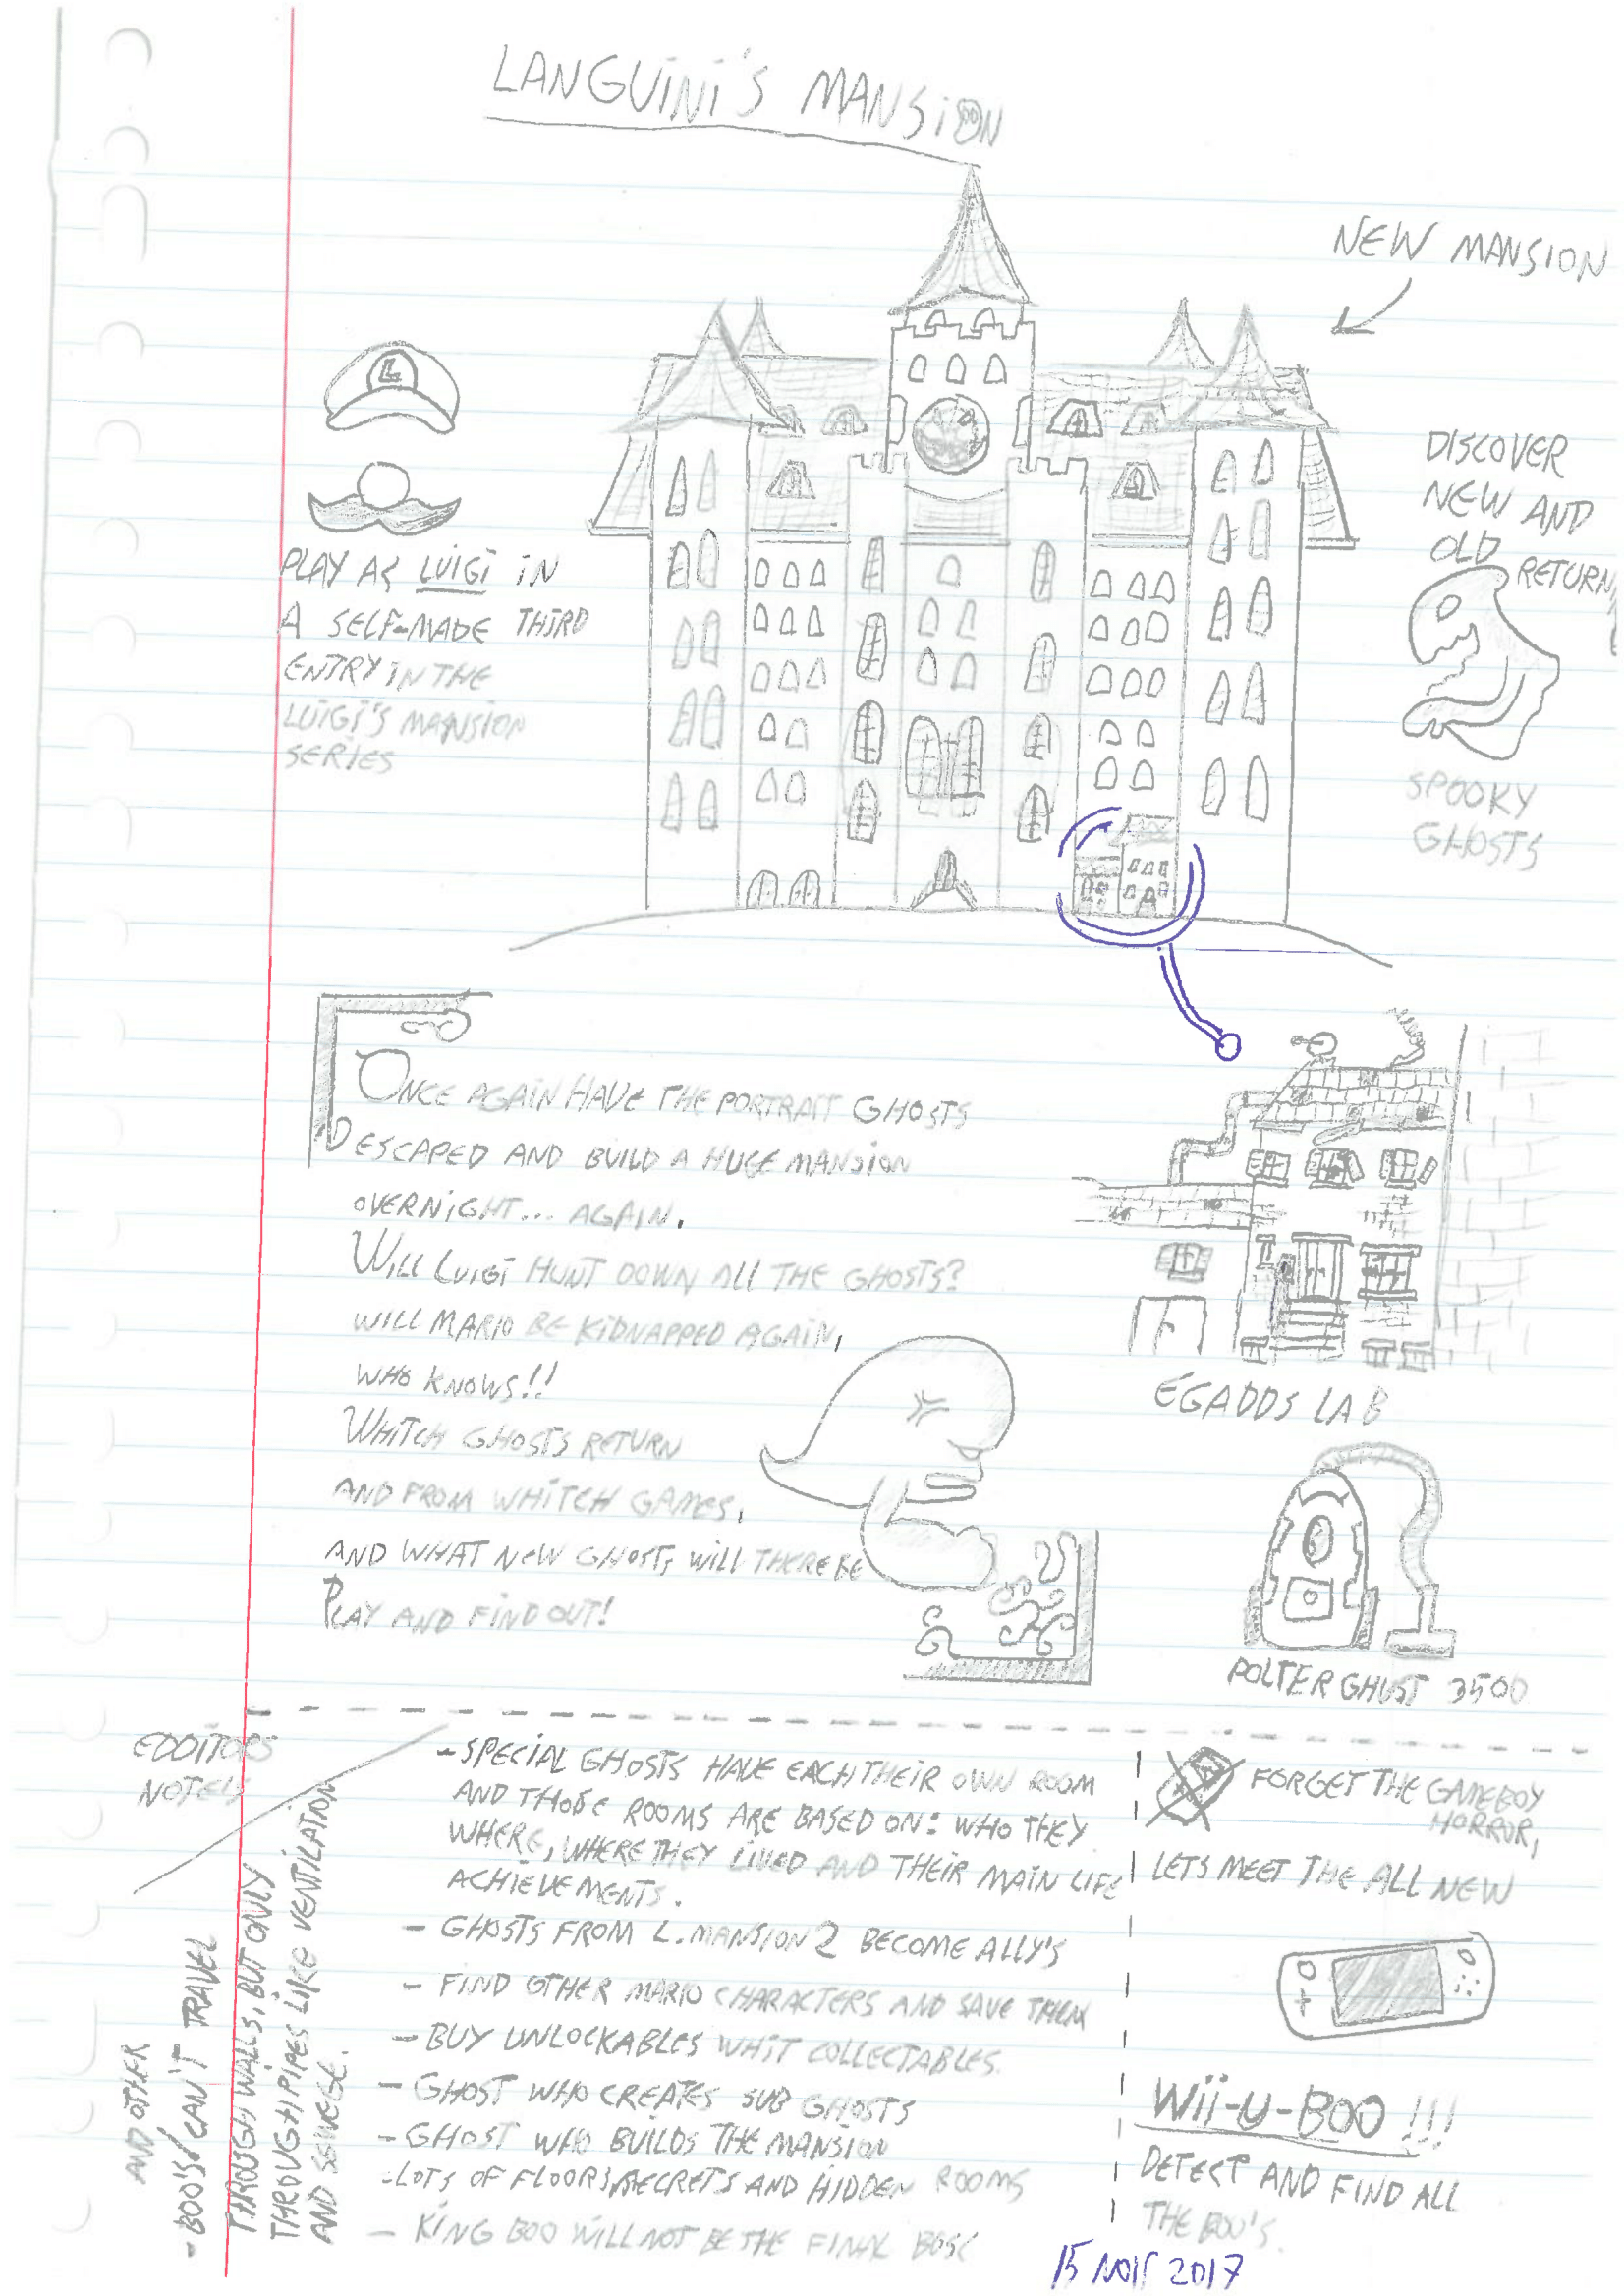 LANGUINI'S MANSION
NEW MANSION
L
PLAY AS LUIGI IN
A SELF-MADE THIRD
ENTRY IN THE
LUIGI'S MANSION
SERIES
DISCOVER
NEW AND
OLD RETURN
SPOOKY
GHOSTS
ONCE AGAIN HAVE THE PORTRAIT GHOSTS
ESCAPED AND BUILD A HUGE MANSION
OVERNIGHT... AGAIN.
WILL LUIGI HUNT DOWN ALL THE GHOSTS?
WILL MARIO BE KIDNAPPED AGAIN,
WHO KNOWS!!
WHITCH GHOSTS RETURN
AND FROM WHITCH GAMES,
AND WHAT NEW GHOSTS WILL THERE BE
PLAY AND FIND OUT!
EGADDS LAB
POLTERGHUST 3500
EDDITORS
NOTES
- SPECIAL GHOSTS HAVE EACH THEIR OWN ROOM
AND THOSE ROOMS ARE BASED ON: WHO THEY
WHERE, WHERE THEY LIVED AND THEIR MAIN LIFE
ACHIEVEMENTS.
- GHOSTS FROM L. MANSION 2 BECOME ALLY'S
- FIND OTHER MARIO CHARACTERS AND SAVE THEM
- BUY UNLOCKABLES WHIT COLLECTABLES.
- GHOST WHO CREATES SUB GHOSTS
- GHOST WHO BUILDS THE MANSION
- LOTS OF FLOORS, SECRETS AND HIDDEN ROOMS
- KING BOO WILL NOT BE THE FINAL BOSS
AND OTHER
- BOO'S CAN'T TRAVEL
THROUGH WALLS, BUT ONLY
THROUGH PIPES LIKE VENTILATION
AND SEWEGE.
FORGET THE GAMEBOY
HORROR,
LETS MEET THE ALL NEW
Wii-U-BOO !!!
DETECT AND FIND ALL
THE BOO'S.
15 NOV 2017